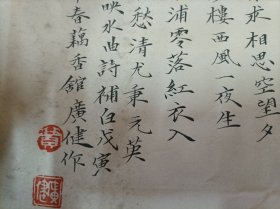 求相思空望夕
樓西風一夜生
浦零落紅衣入
愁清尤秉元英
映水曲詩補白戊寅
春藕香館廣健作